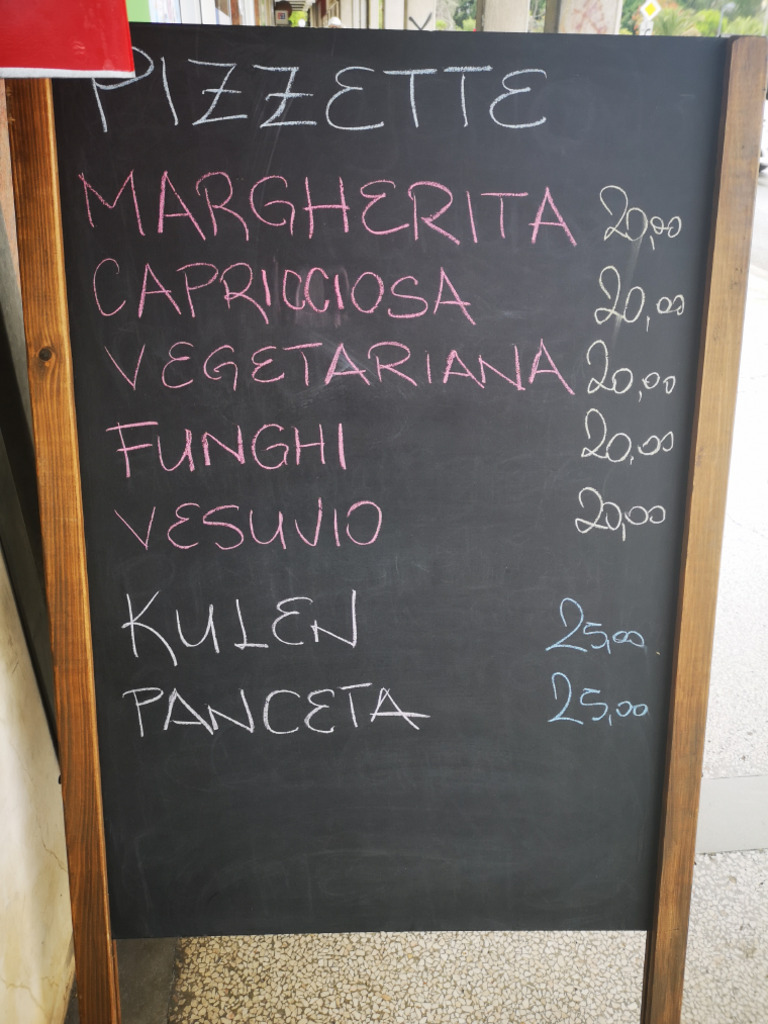 PIZZETTE
MARGHERITA 20,00
CAPRICCIOSA 20,00
VEGETARIANA 20,00
FUNGHI 20,00
VESUVIO 20,00
KULEN 25,00
PANCETA 25,00